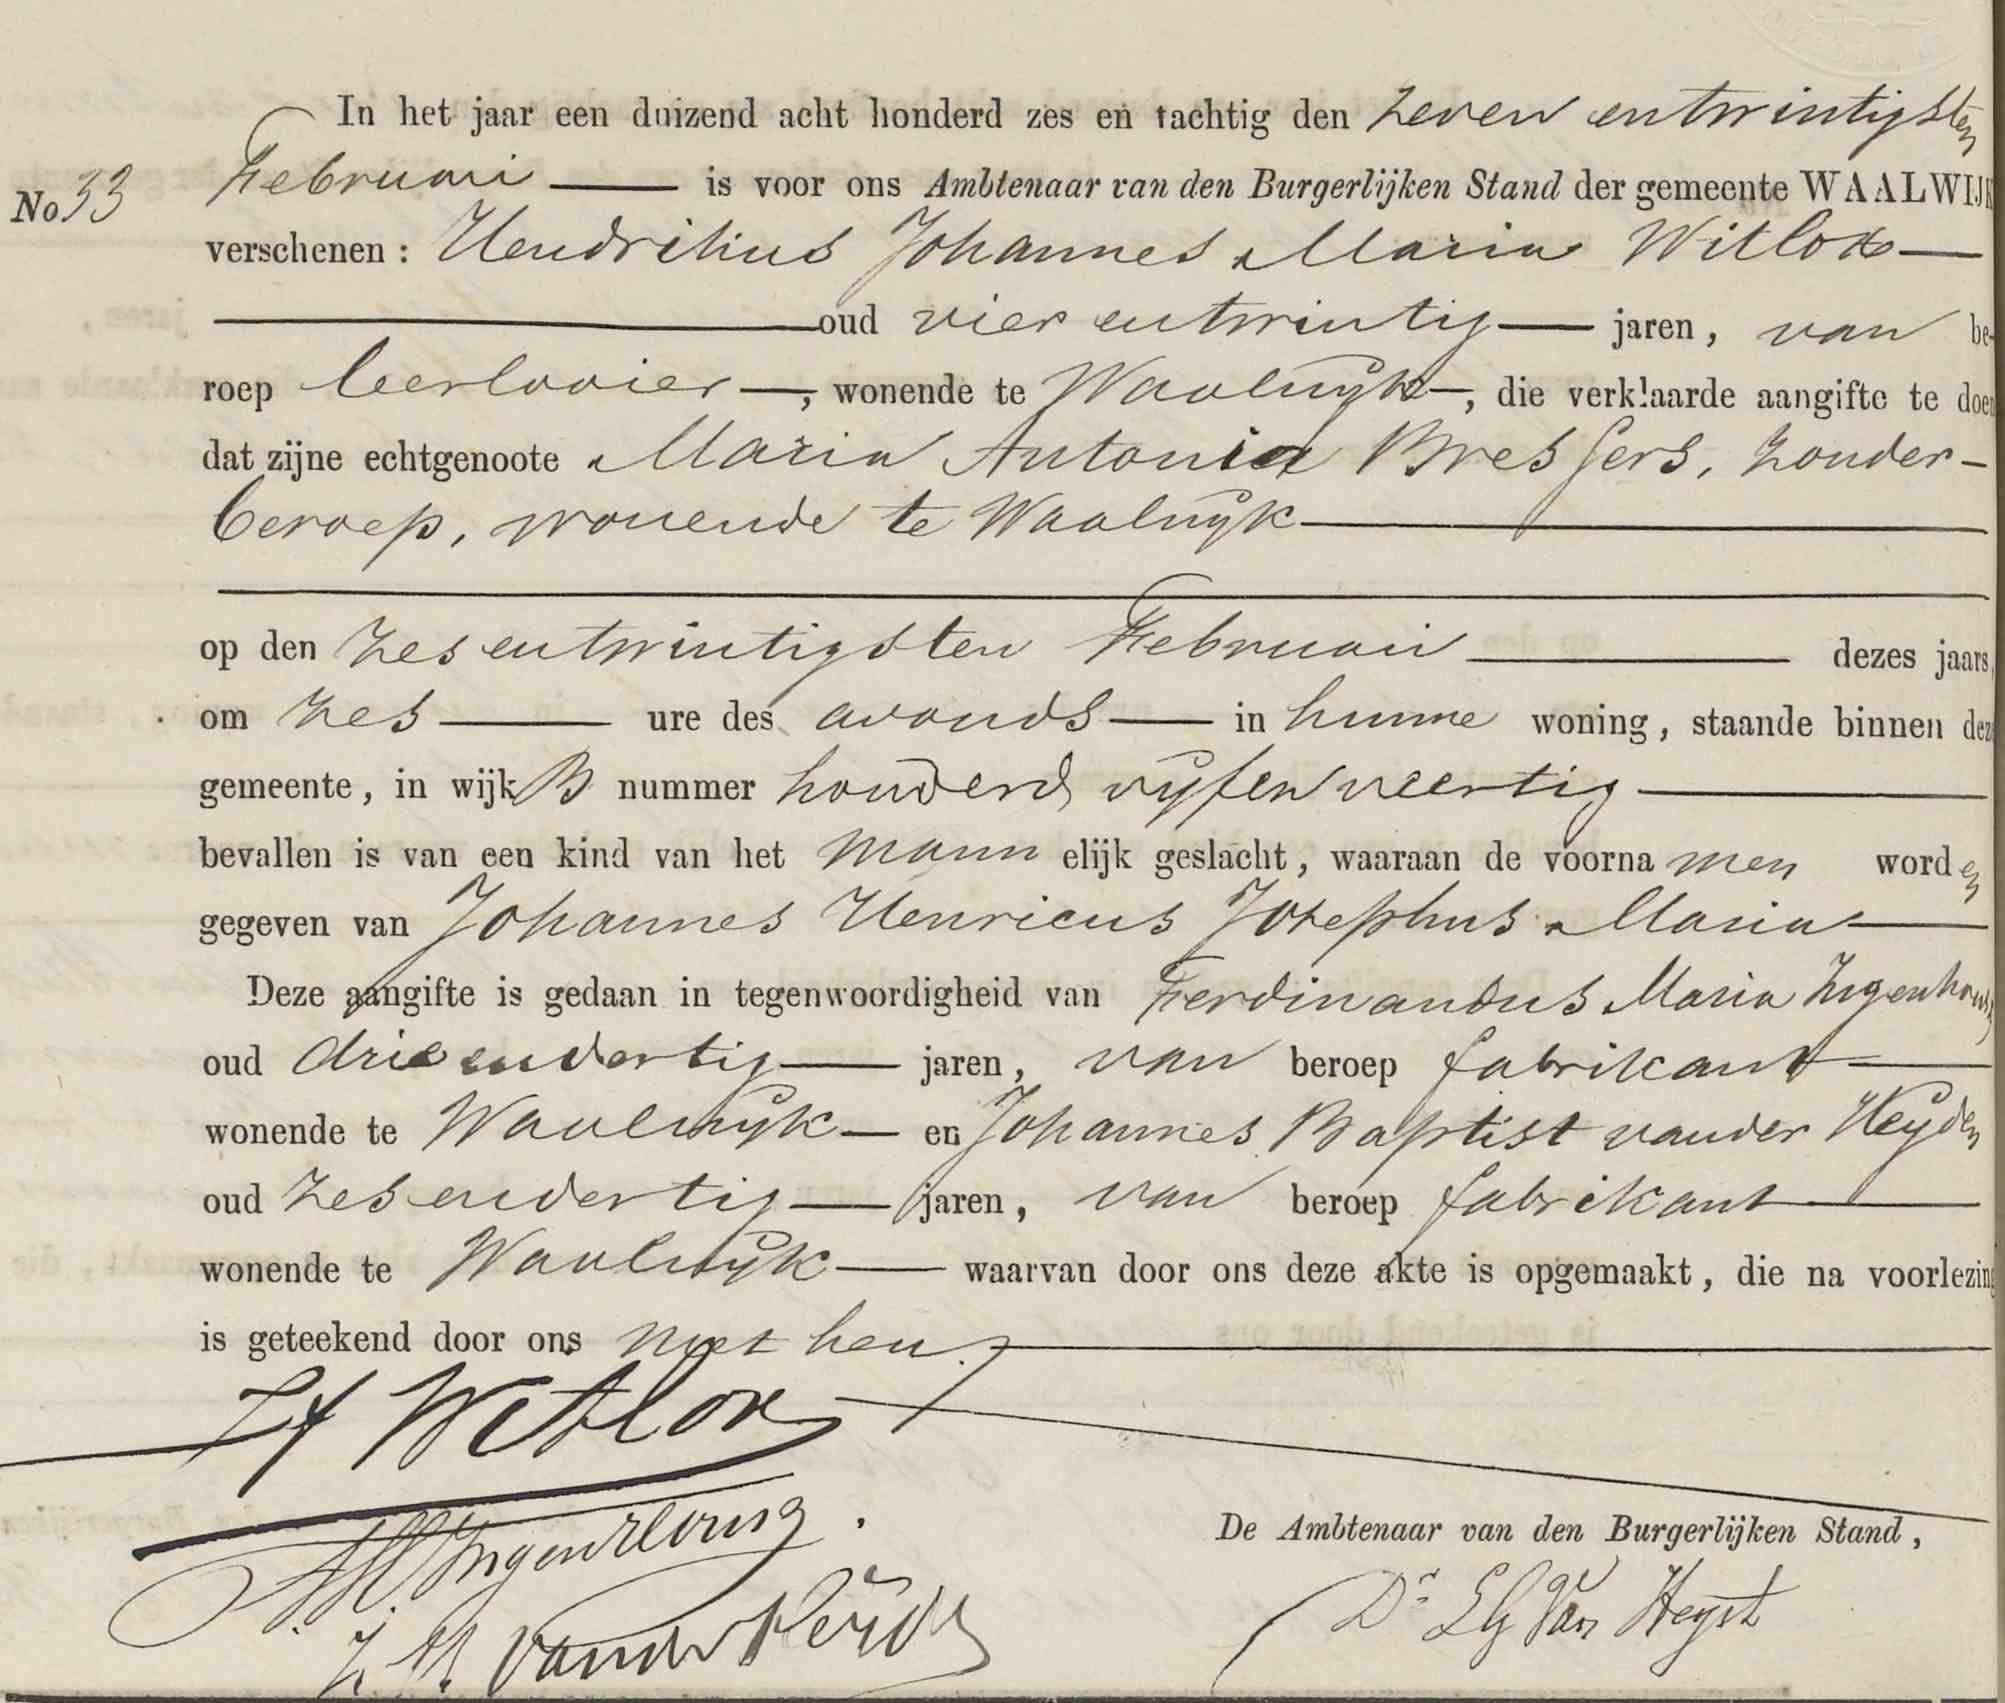 In het jaar een duizend acht honderd zes en tachtig den zeven entwintigsten
No 33 Februari — is voor ons Ambtenaar van den Burgerlijken Stand der gemeente WAALWIJK
verschenen : Hendrikus Johannes Maria Witlox —
— oud vier entwintig — jaren, van be-
roep leerlooier —, wonende te Waalwijk —, die verklaarde aangifte te doen
dat zijne echtgenoote Maria Antonia Bressers, zonder-
beroep, wonende te Waalwijk —
op den zesentwintigsten Februari — dezes jaars,
om zes — ure des avonds — in hunne woning, staande binnen deze
gemeente, in wijk B nummer honderd vijfenveertig —
bevallen is van een kind van het mannelijk geslacht, waaraan de voornamen worden
gegeven van Johannes Henricus Josephus Maria —
Deze aangifte is gedaan in tegenwoordigheid van Ferdinandus Maria Ingenhousz
oud drieendertig — jaren, van beroep fabrikant —
wonende te Waalwijk — en Johannes Baptist vander Heyden
oud zesendertig — jaren, van beroep fabrikant —
wonende te Waalwijk — waarvan door ons deze akte is opgemaakt, die na voorlezing
is geteekend door ons met hen. —
Witlox
Ingenhousz
De Ambtenaar van den Burgerlijken Stand,
vander Heijden
Dr. Van Heyst